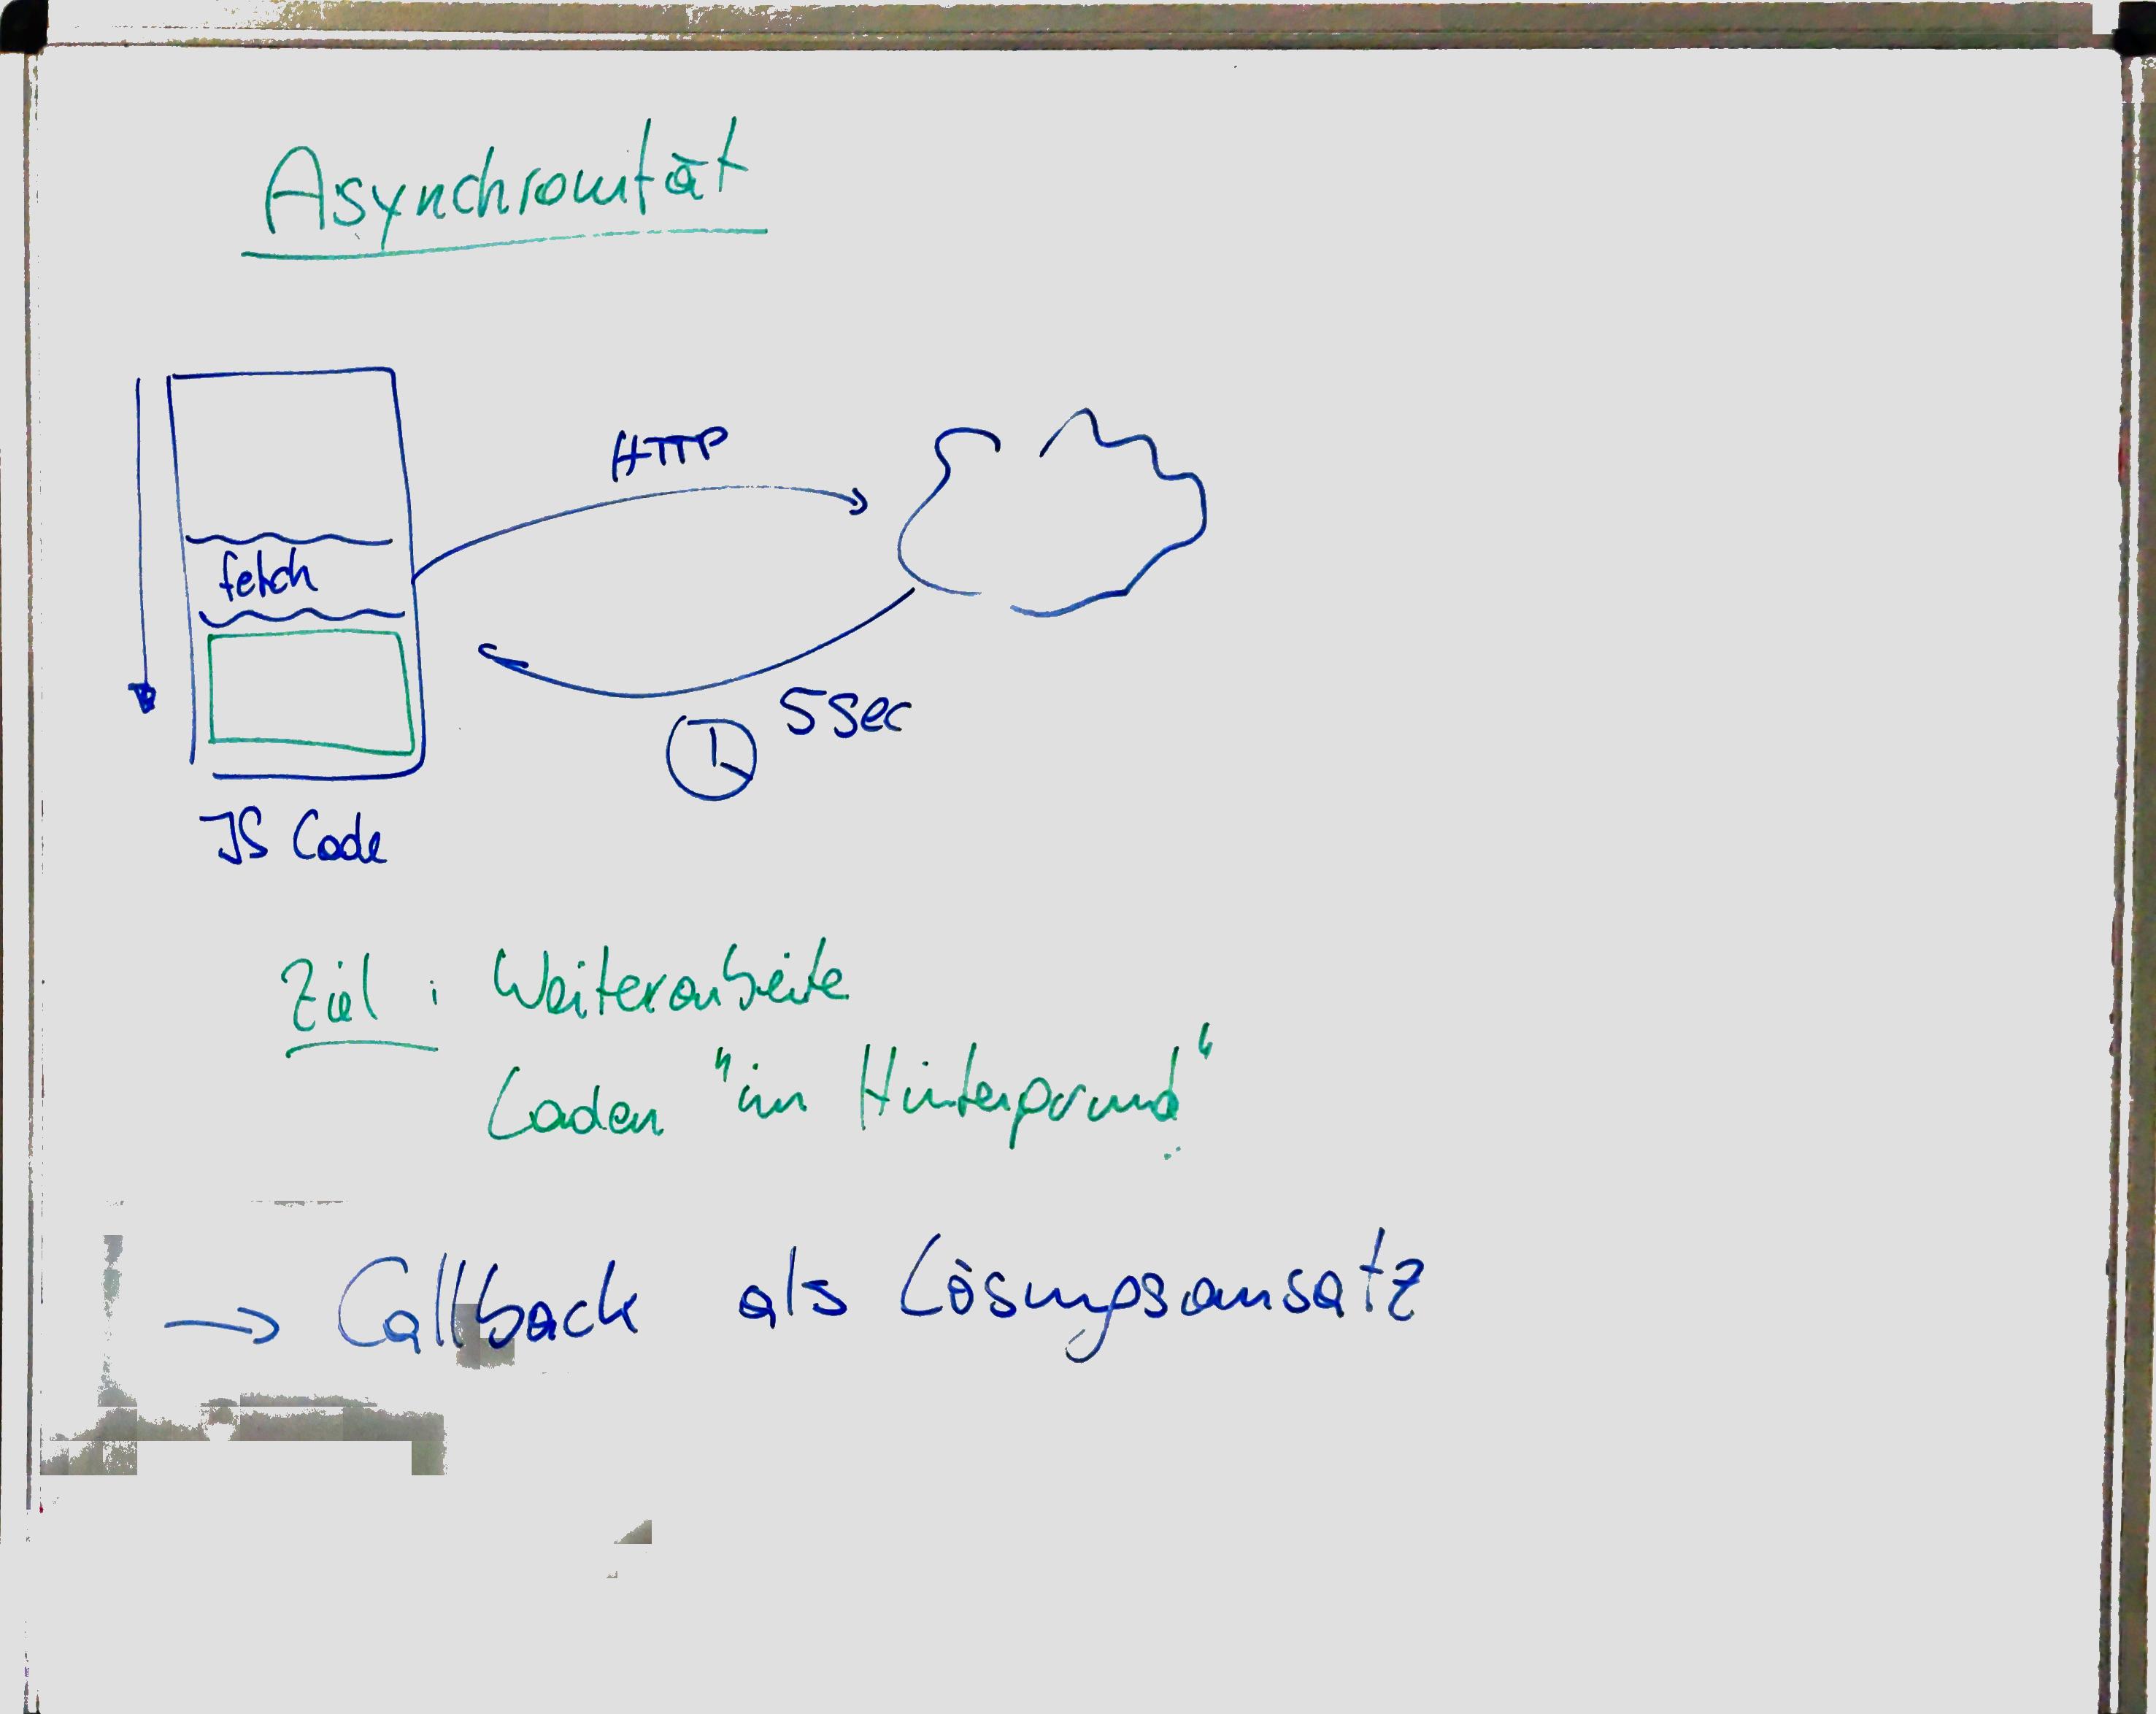 Asynchronität
HTTP
fetch
5 sec
JS Code
Ziel : Weiterarbeite
Laden "im Hintergrund"
→ Callback als Lösungsansatz